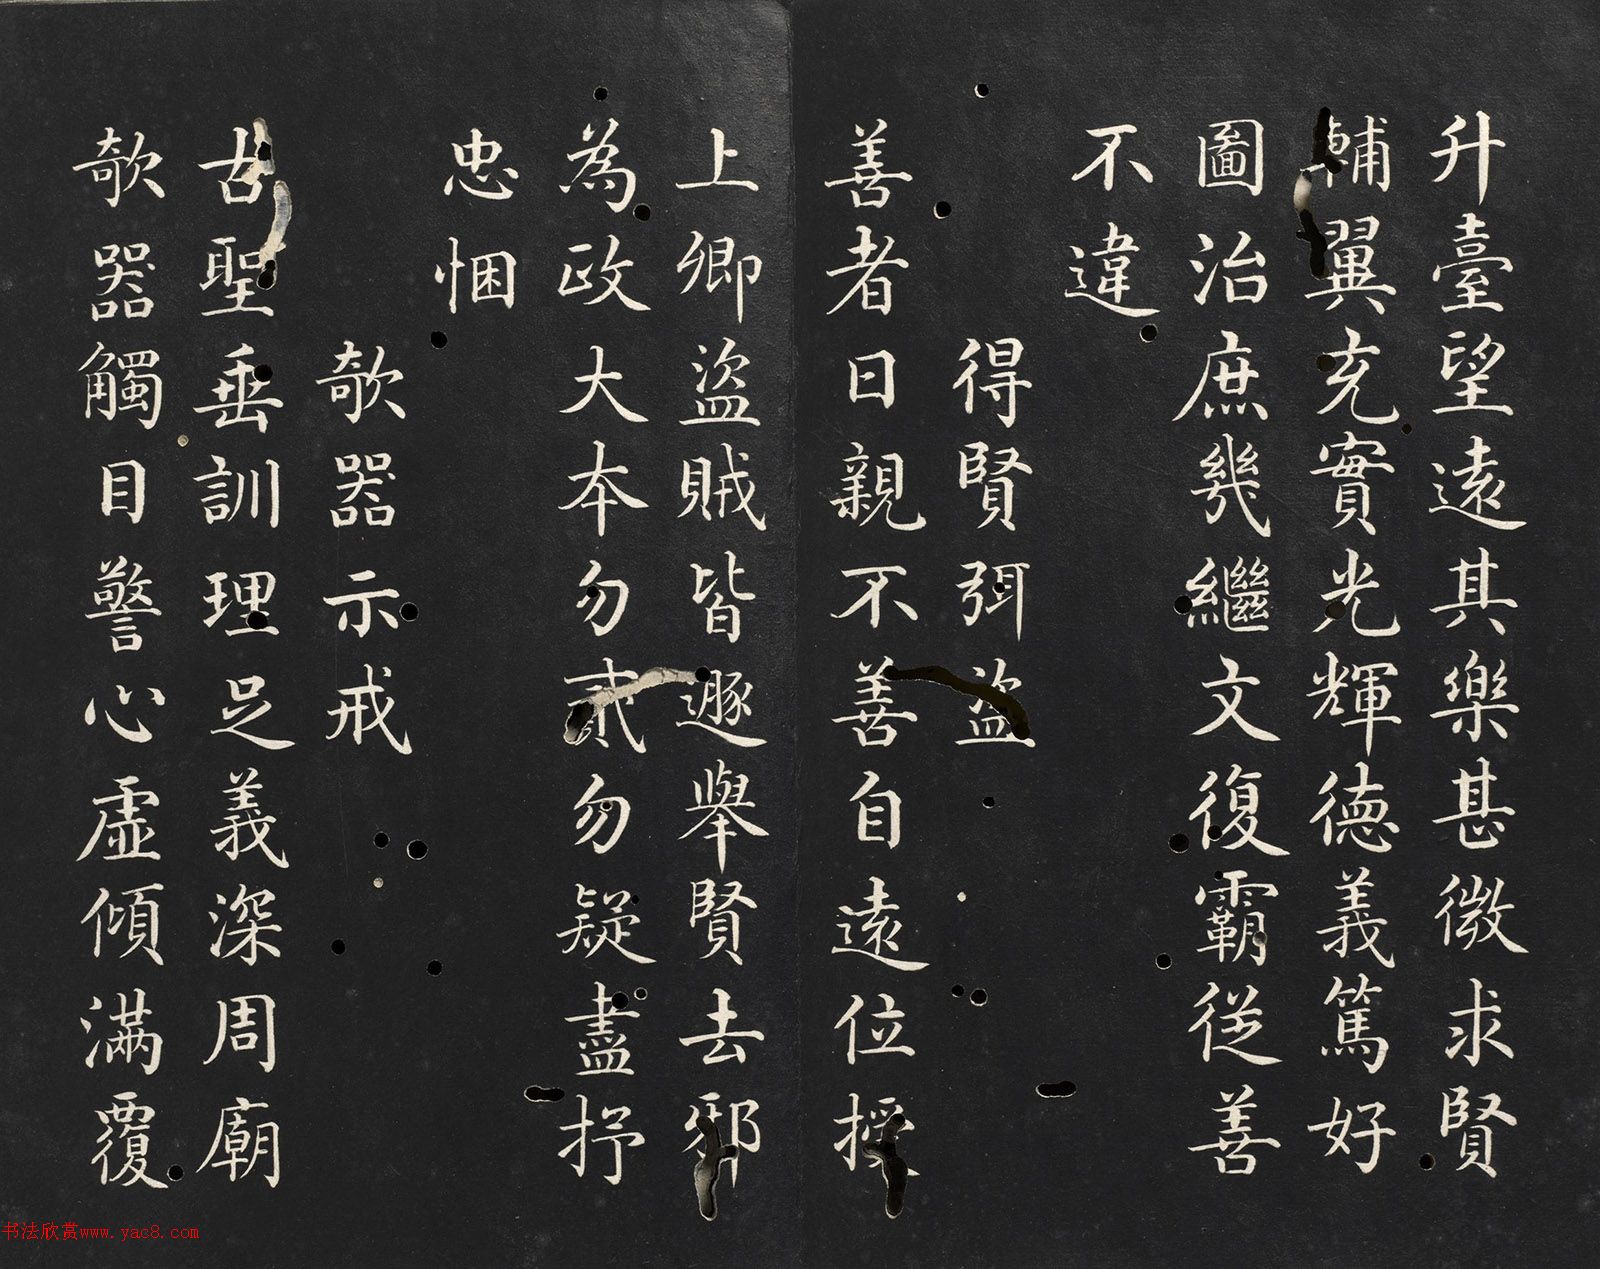 升臺望遠其樂甚微求賢
輔翼充實光輝德義篤好
圖治庶幾繼文復霸從善
不違
得賢弭盜
善者日親不善自遠位授
上卿盜賊皆遯舉賢去邪
為政大本勿貳勿疑盡抒
忠悃
欹器示戒
古聖垂訓理足義深周廟
欹器觸目警心虛傾滿覆
书法欣赏www.yac8.com